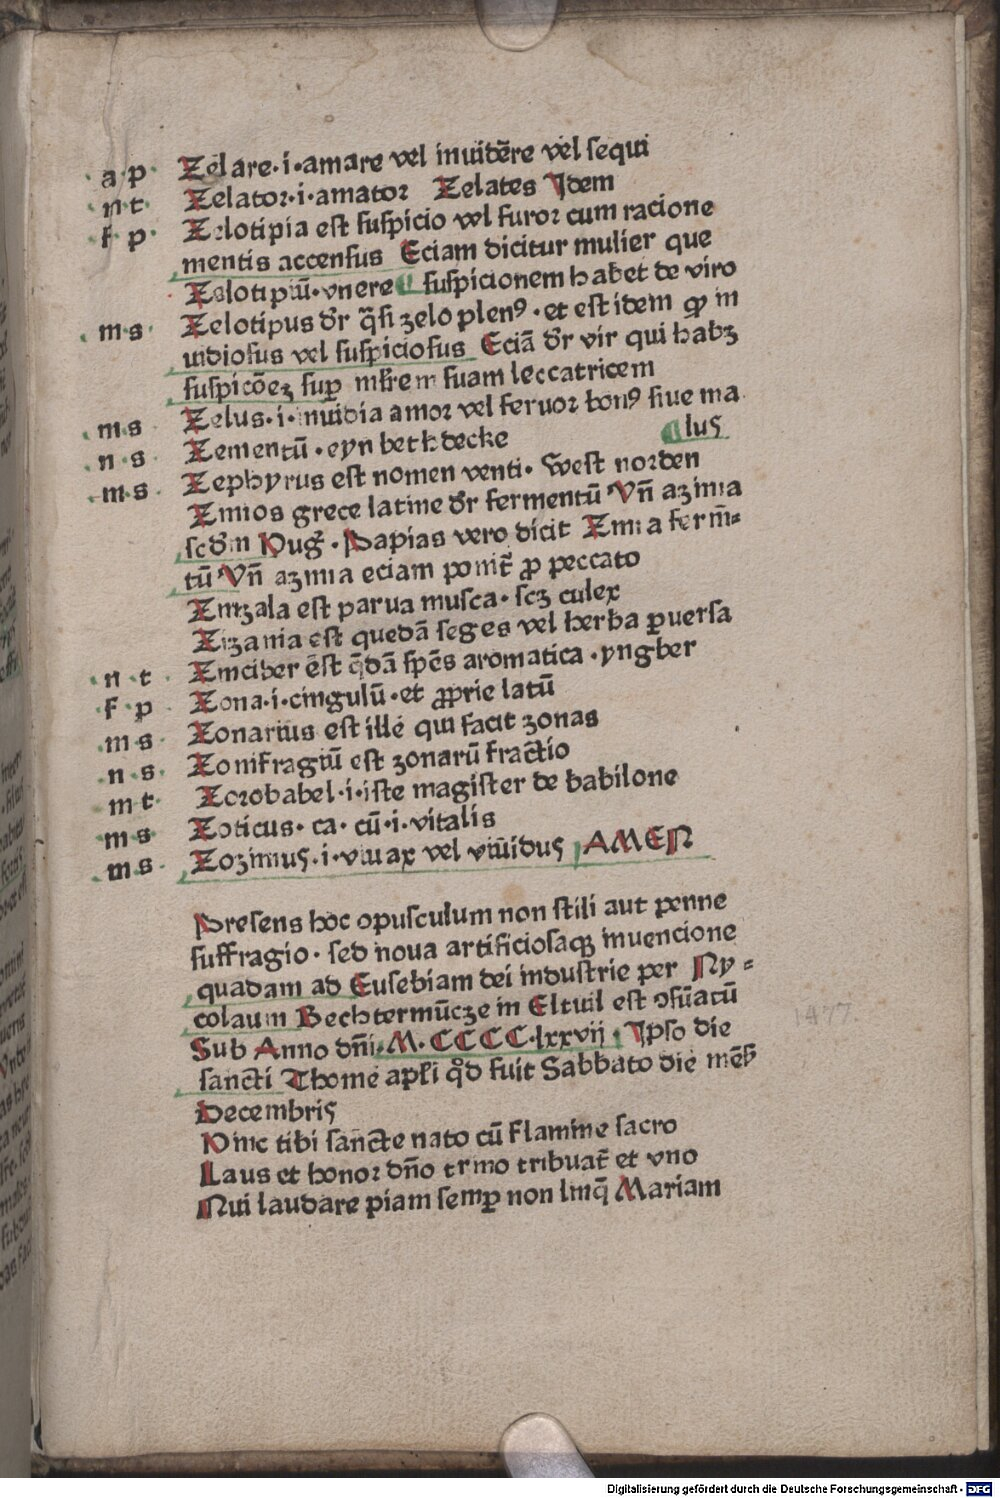 a p Zelare·i·amare vel inuidēre vel sequi
n t Zelator·i·amator Zelates Jdem
f p Zelotipia est suspicio vel furor cum racione
mentis accensus Eciam dicitur mulier que
Zelotipiū·vnere suspicionem habet de viro
m s Zelotipus dr̄ q̄si zelo plenꝰ·et est idem ꝙ in
uidiosus vel suspiciosus Eciā dr̄ vir qui habꝫ
suspicōeꝫ sup̄ mr̄em suam leccatricem
m s Zelus·i·inuidia amor vel feruor bonꝰ siue ma
n s Zementū·eyn beth decke lus
m s Zephyrus est nomen venti·West norden
Zimos grece latine dr̄ fermentū Vn̄ azima
scd̄m Huḡ·Papias vero dicit Zima ferm̄⸗
tū Vn̄ azima eciam ponit̄ ꝓ peccato
Zinzala est parua musca·scꝫ culex
Zizania est quedā seges vel herba ꝑuersa
n t Zinciber ēst q̄dā spēs aromatica·yngber
f p Zona·i·cingulū·et ꝓprie latū
m s Zonarius est ille qui facit zonas
n s Zonifragiū est zonarū fractio
m t Zorobabel·i·iste magister de babilone
m s Zoticus·ca·cū·i·vitalis
m s Zozimus·i·viuax vel viuidus AMEN
Presens hoc opusculum non stili aut penne
suffragio·sed noua artificiosaqꝫ inuencione
quadam ad Eusebiam dei industrie per Ny⸗
colaum Bechtermūcze in Eltuil est ꝯsūatū
Sub Anno dn̄i·M·CCCC·lxxvij·Jpso die
sancti Thome apl̄i qd̄ fuit Sabbato die mēs̄
Decembris
1477.
Hinc tibi sancte nato cū flamine sacro
Laus et honor dn̄o trino tribuat̄ et vno
Qui laudare piam semꝑ non linq̄ Mariam
Digitalisierung gefördert durch die Deutsche Forschungsgemeinschaft - DFG